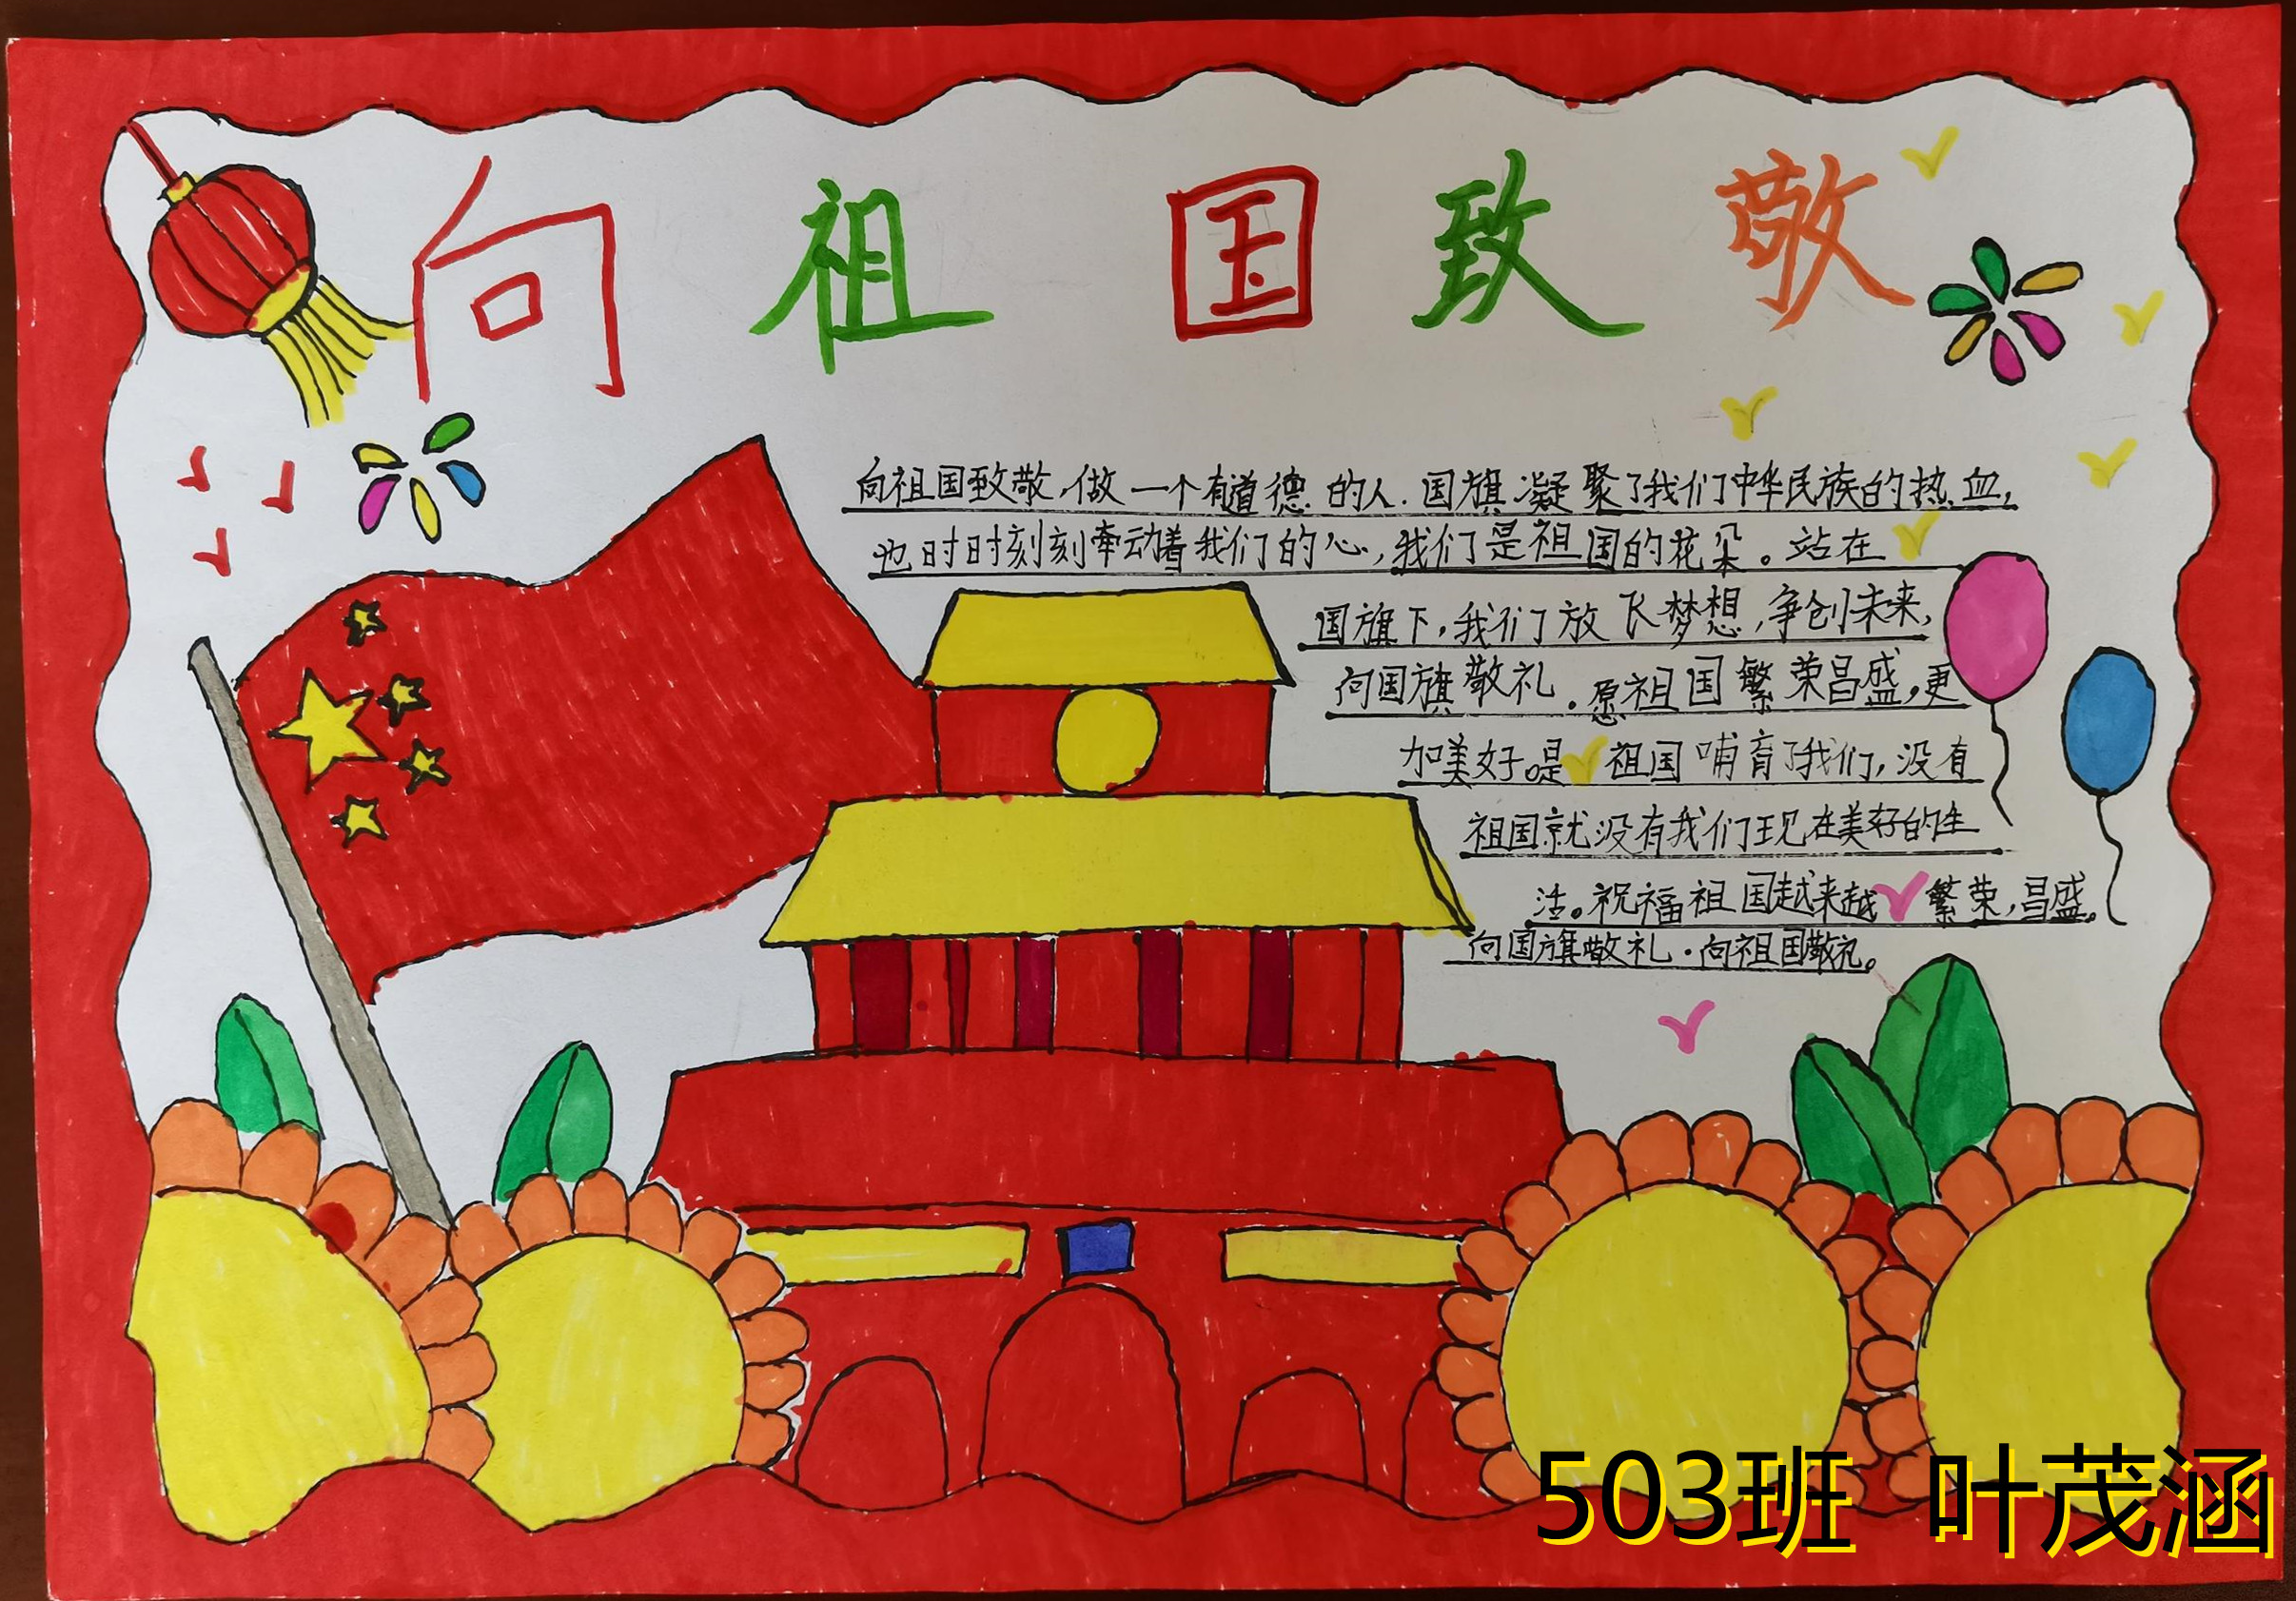 向祖国致敬
向祖国致敬，做一个有道德的人．国旗凝聚了我们中华民族的热血，
也时时刻刻牵动着我们的心，我们是祖国的花朵。站在
国旗下，我们放飞梦想，争创未来，
向国旗敬礼．愿祖国繁荣昌盛，更
加美好。是祖国哺育了我们，没有
祖国就没有我们现在美好的生
活。祝福祖国越来越繁荣，昌盛。
向国旗敬礼．向祖国敬礼。
503班 叶茂涵